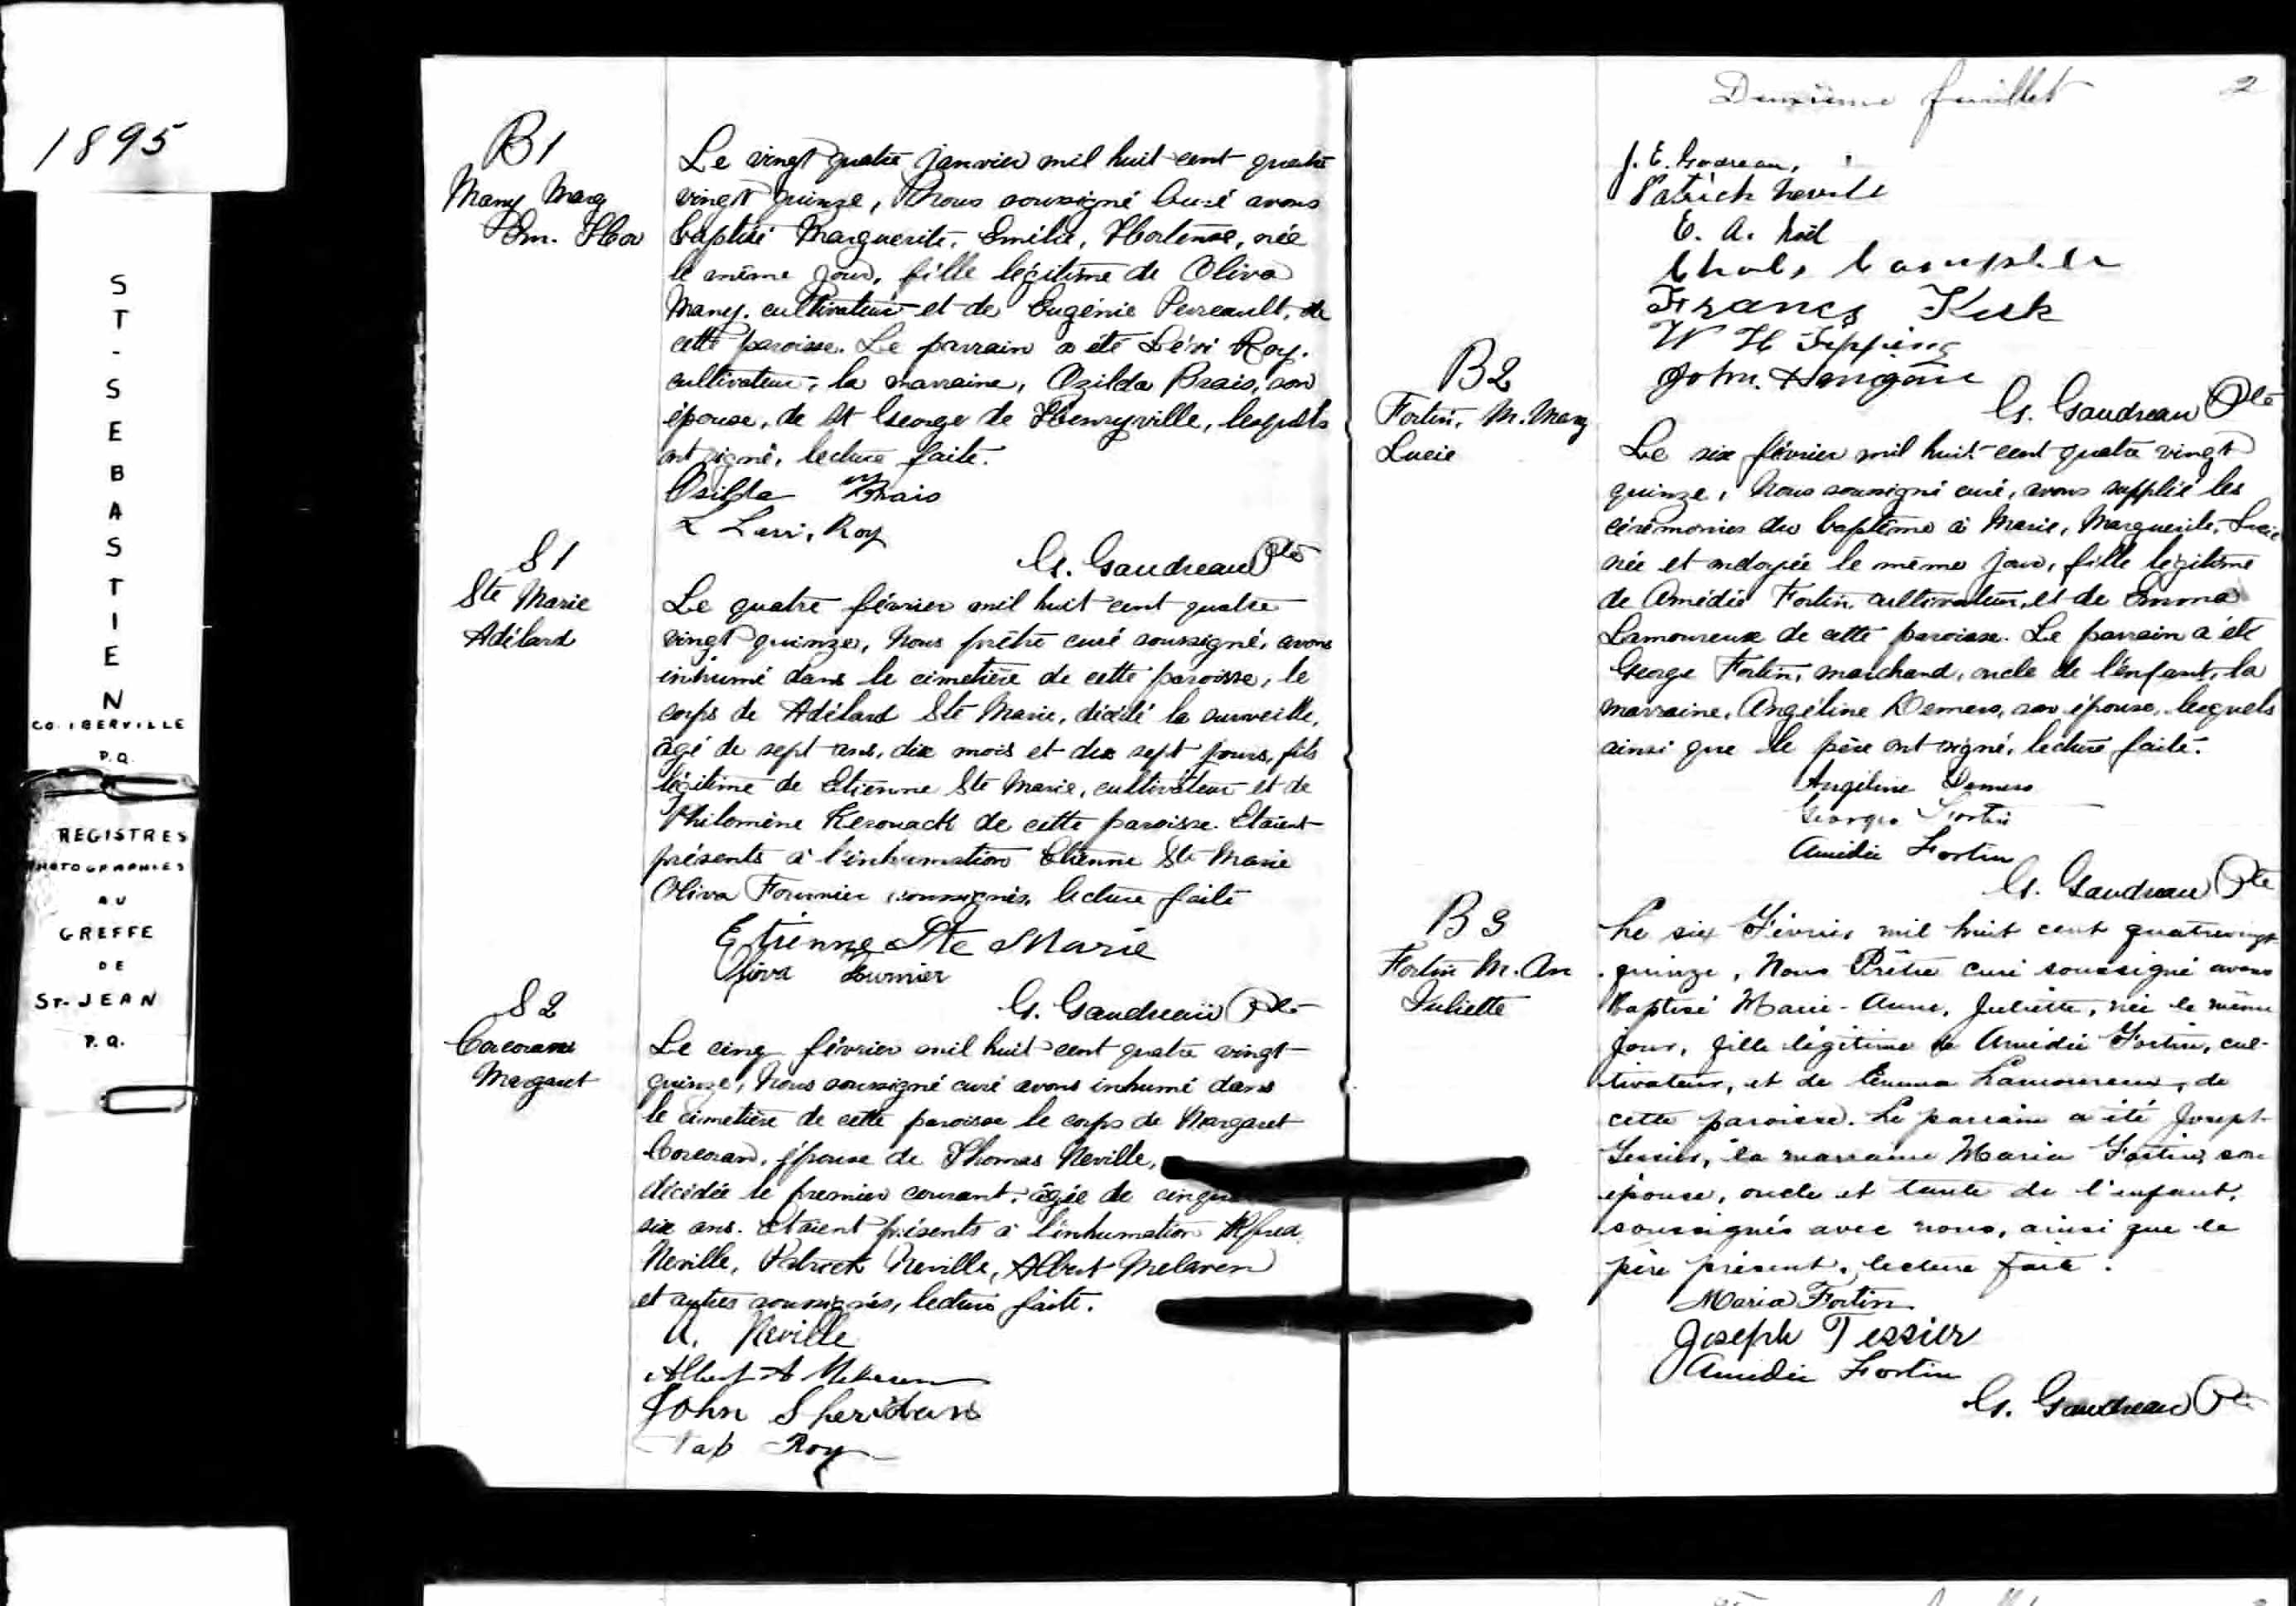 1895
ST-SEBASTIEN
CO. IBERVILLE
P.Q.
REGISTRES
PHOTOGRAPHIES
AU
GREFFE
DE
ST-JEAN
P.Q.
B1
Many Marg
Em. Hor
Le vingt quatre janvier mil huit cent quatre
vingt quinze, Nous soussigné Curé avons
baptisé Marguerite, Emélie, Hortense, née
le même jour, fille légitime de Oliva
Many, cultivateur et de Eugénie Perreault, de
cette paroisse. Le parrain a été Lévi Roy,
cultivateur, la marraine, Ozilda Brais, son
épouse, de St George de Henryville, lesquels
ont signé, lecture faite.
Osilda Brais
L Levi, Roy
G. Gaudreau Ptre
S1
Ste Marie
Adélard
Le quatre février mil huit cent quatre
vingt quinze, Nous prêtre curé soussigné, avons
inhumé dans le cimetière de cette paroisse, le
corps de Adélard Ste Marie, décédé la surveille,
âgé de sept ans, dix mois et dix sept jours, fils
légitime de Etienne Ste Marie, cultivateur et de
Philomène Kerouack de cette paroisse. Etaient
présents à l'inhumation Etienne Ste Marie
Oliva Fournier soussignés, lecture faite
Etienne Ste Marie
Oliva Furnier
G. Gaudreau Ptre
S2
Corcoran
Margaret
Le cinq février mil huit cent quatre vingt
quinze, Nous soussigné curé avons inhumé dans
le cimetière de cette paroisse le corps de Margaret
Corcoran, épouse de Thomas Neville,
décédée le premier courant, âgée de
six ans. Etaient présents à l'inhumation Alfred
Neville, Patrick Neville, Albert Melaven
et autres soussignés, lecture faite.
A. Neville
Albert A
John Sheridan
Roy
Deuxième feuillet 2
J. E. Godreau,
Patrick Nevile
E. A. Noël
Francs Kirk
W H Tipping
John
G. Gaudreau Ptre
B2
Fortin, M. Marg
Lucie
Le six février mil huit cent quatre vingt
quinze, Nous soussigné curé, avons supplié les
cérémonies du baptême à Marie, Marguerite, Lucie
née et ondoyée le même jour, fille légitime
de Amédée Fortin, cultivateur, et de Emma
Lamoureux de cette paroisse. Le parrain a été
George Fortin, marchand, oncle de l'enfant, la
marraine, Angéline Demers, son épouse, lesquels
ainsi que le père ont signé, lecture faite.
Angéline Demers
Georges Fortin
Amédée Fortin
G. Gaudreau Ptre
B3
Fortin M. An
Juliette
Le six Février mil huit cent quatrevingt
quinze, Nous Prêtre curé soussigné avons
baptisé Marie-Anne, Juliette, née le même
jour, fille légitime de Amédée Fortin, cul-
tivateur, et de Emma Lamoureux, de
cette paroisse. Le parrain a été Joseph
Tessier, la marraine Maria Fortin, son
épouse, oncle et tante de l'enfant,
soussignés avec nous, ainsi que le
père présent, lecture faite.
Maria Fortin
Joseph Tessier
Amédée Fortin
G. Gaudreau Ptre